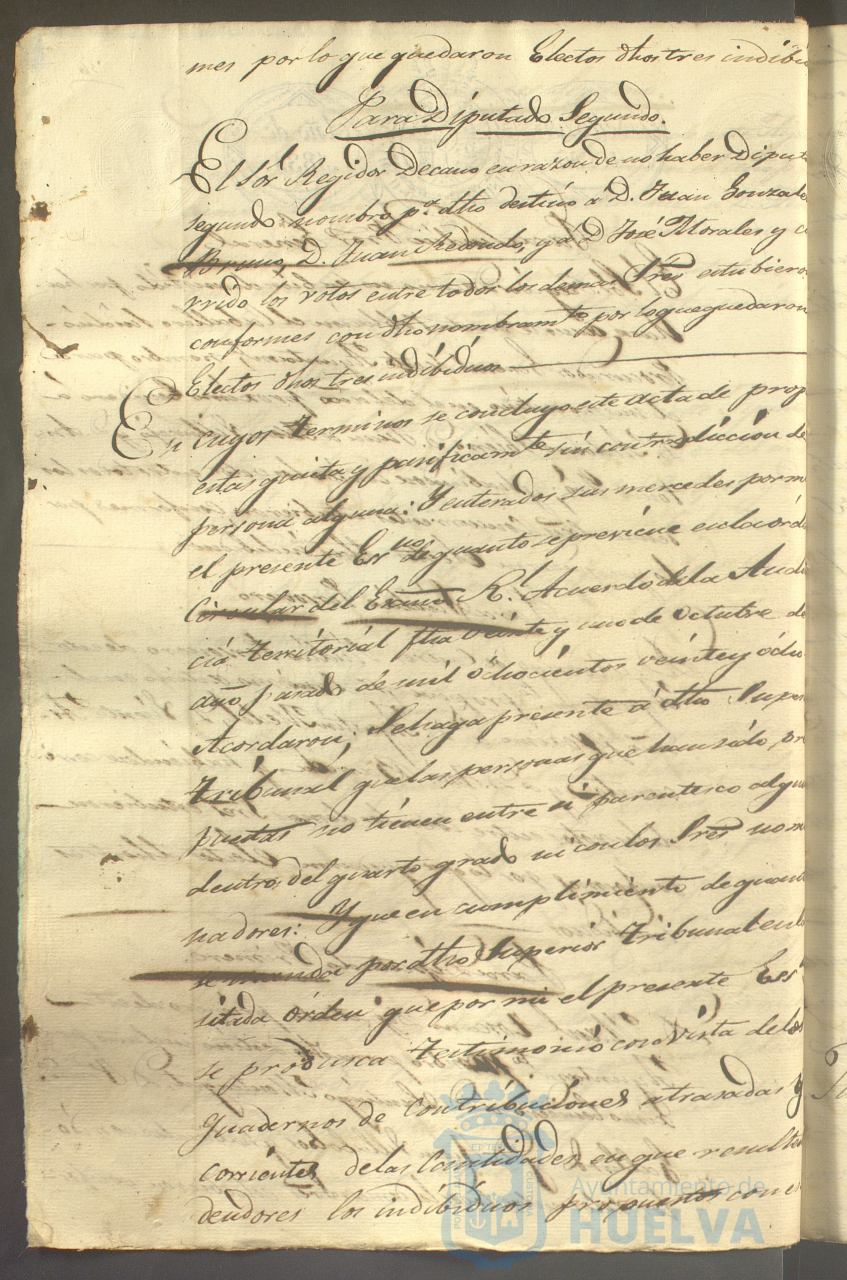 mes por lo que quedaron Electos dhos tres indibi
Para Diputado Segundo.
El Sor. Regidor Decano en razon de no haber Diput
segundo nombro pa. dho destino á D. Juan Gonzale
Bruno, D. Juan Redondo, y á D José Morales y co
rrido los votos entre todos los demas Sres estubiero
conformes con dho nombramto por lo que quedaron
Electos dhos tres indibiduos
En cuyos terminos se concluyo este acta de prop
estas quieta y pasificamte sin contradiccion de
persona alguna: Y enterados sus mercedes por m
el presente Esno de quanto se previene en la órd
Circular del Exmo Rl. Acuerdo de la Audi
cia territorial fha veinte y uno de octubre de
año pasado de mil ochocientos veinte y ócho
Acordaron; Se haga presente á dho Super
tribunal que las personas que han sido pro
puestas no tienen entre si parentesco algu
dentro del quarto grado ni con los Sres nom
nadores: Y que en cumplimiento de quan
se manda por dho Superior tribunal en la
sitada órden que por mi el presente Ess
se produsca testimonio con vista de los
quadernos de contribuciones atrasadas y
corrientes de las Cantidades en que resulte
deudores los indibiduos propuestos con e
Ayuntamiento de
HUELVA